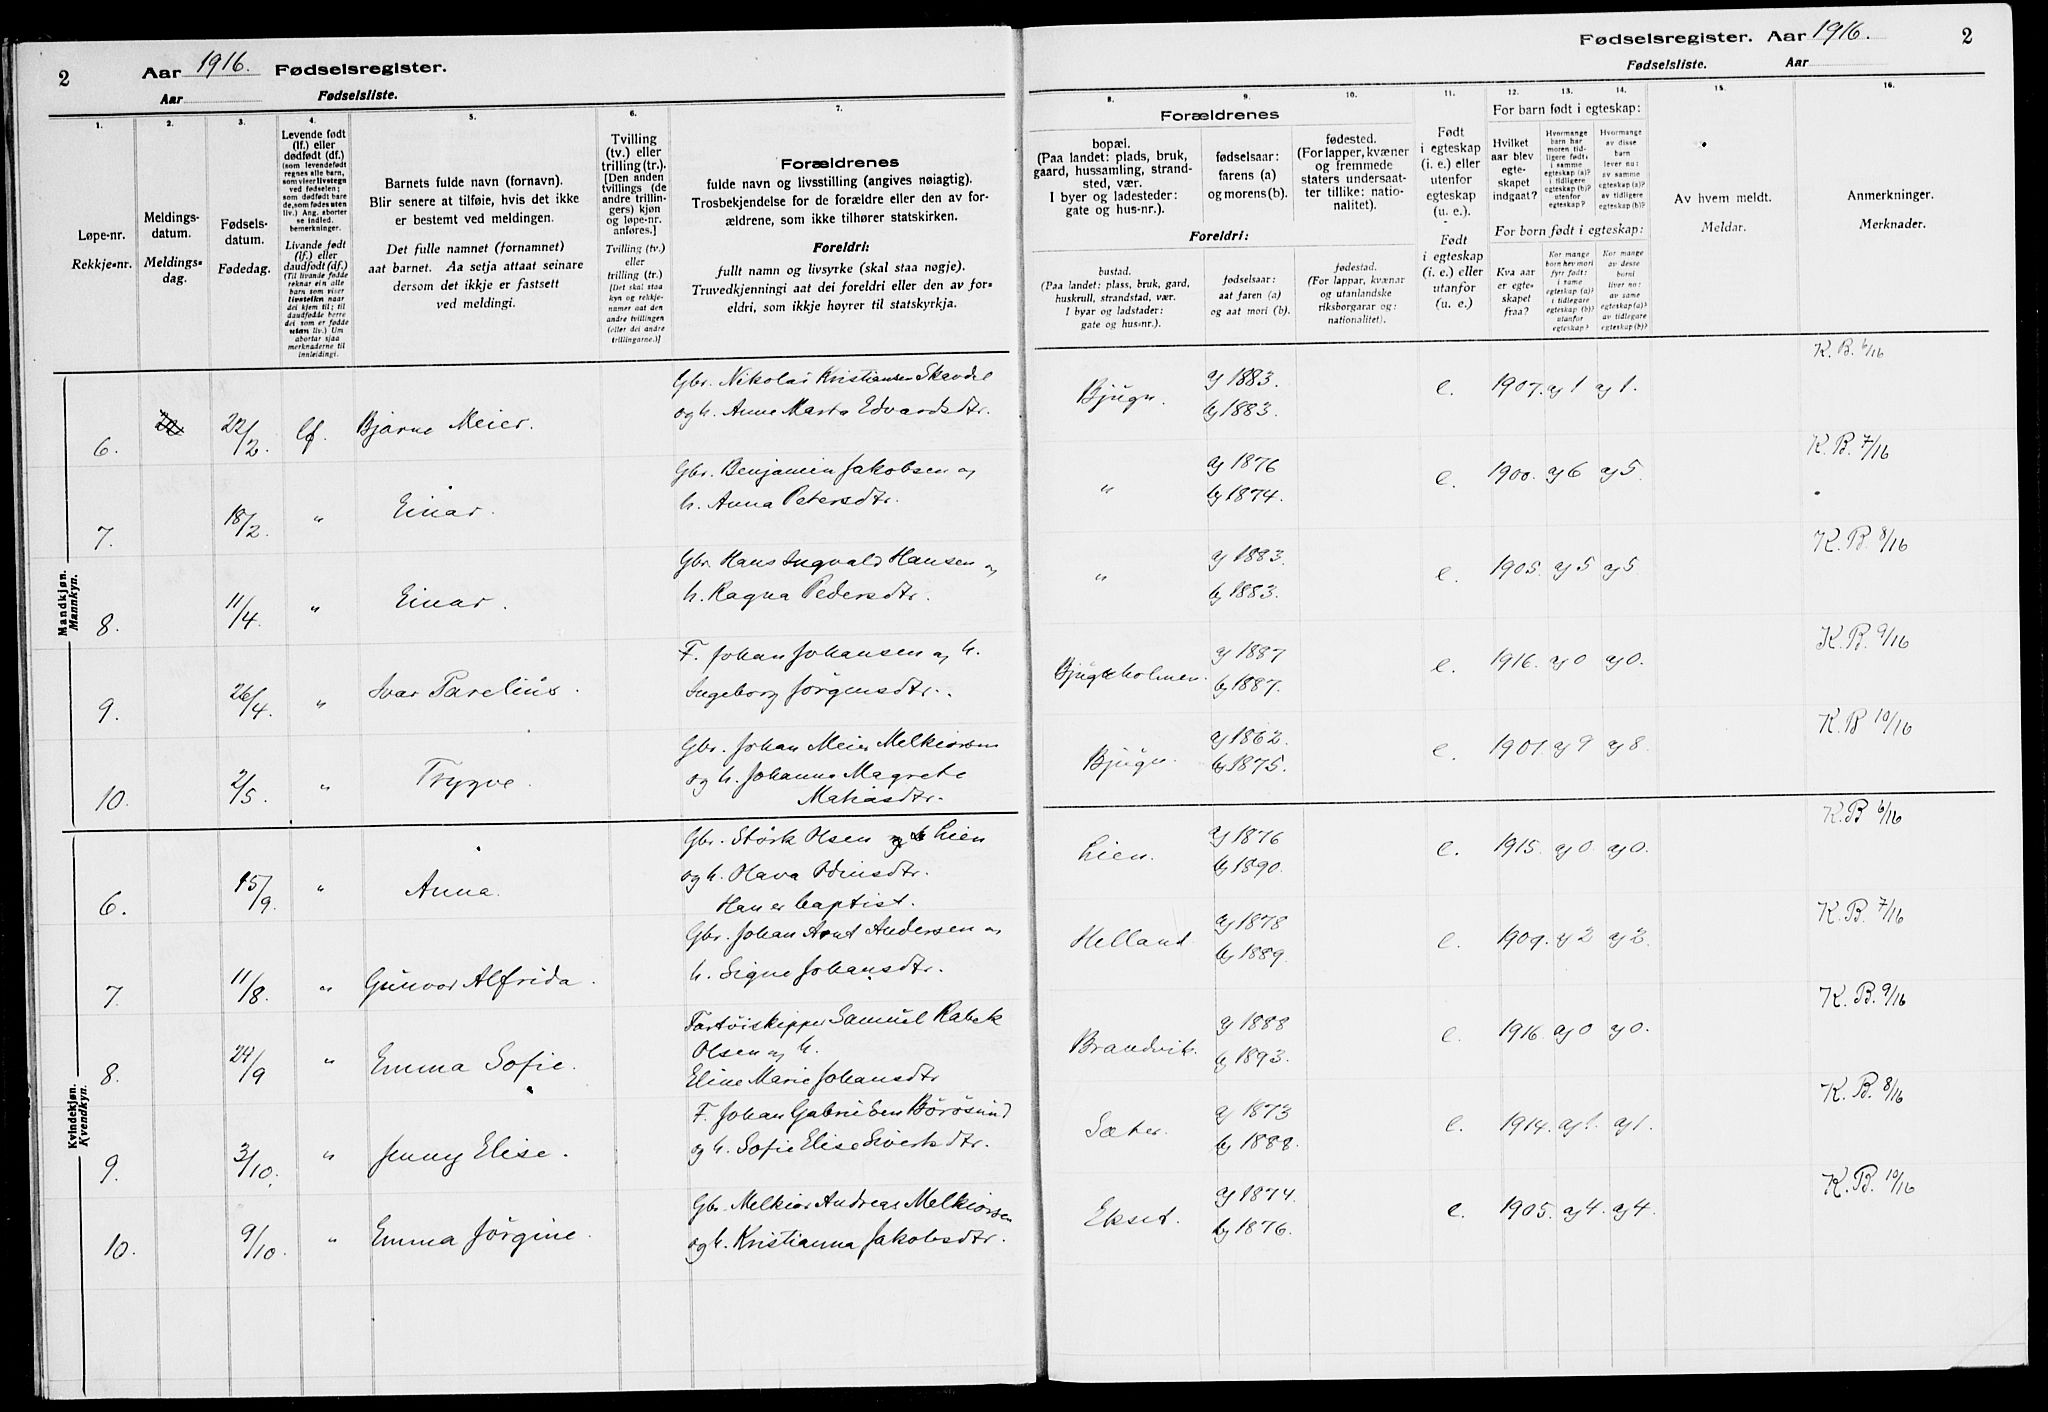 2 Aar 1916. Fødselsregister.
Aar Fødselsliste.
Fødselsregister. Aar 1916. 2
Fødselsliste. Aar
1. 2. 3. 4. 5. 6. 7.
Løpe-nr.
Rekkje-nr.
Meldings-
datum.
Meldings-
dag.
Fødsels-
datum.
Fødedag.
Levende født
(lf.) eller
dødfødt (df.)
(som levendefødt
regnes alle barn,
som viser livstegn
ved fødselen;
som dødfødt bare
de, som fødes uten
liv.) Ang. aborter
se indled.
bemerkninger.
Livande født
(lf.) eller
daudfødt (df.)
(Til livande fødde
reknar ein alle
barn som viser
livsteikn naar
dei kjem til; til
daudfødde berre
dei som er fødde
utan liv.) Um
abortar sjaa
merknaderne til
innleidingi.
Barnets fulde navn (fornavn).
Blir senere at tilføie, hvis det ikke
er bestemt ved meldingen.
Det fulle namnet (fornamnet)
aat barnet. Aa setja attaat seinare
dersom det ikkje er fastsett
ved meldingi.
Tvilling
(tv.) eller
trilling (tr.).
[Den anden
tvillings (de
andre trillin-
gers) kjøn
og løpe-nr.
anføres.]
Tvilling (tv.)
eller
trilling (tr.)
[Det skal staa
kyn og rekkje-
numer aat den
andre tvillingen
(eller dei andre
trillingarne.)]
Forældrenes
fulde navn og livsstilling (angives nøiagtig).
Trosbekjendelse for de forældre eller den av for-
ældrene, som ikke tilhører statskirken.
Foreldri:
fullt namn og livsyrke (skal staa nøgje).
Truvedkjenningi aat dei foreldri eller den av for-
eldri, som ikkje høyrer til statskyrkja.
8. 9. 10. 11. 12. 13. 14. 15. 16.
Forældrenes
bopæl.
(Paa landet: plads, bruk,
gaard, hussamling, strand-
sted, vær.
I byer og ladesteder:
gate og hus-nr.).
fødselsaar:
farens (a)
og morens (b).
fødested.
(For lapper, kvæner
og fremmede
staters undersaat-
ter tillike: natio-
nalitet).
Foreldri:
bustad.
(Paa landet: plass, bruk, gard,
huskrull, strandstad, vær.
I byar og ladstader:
gate og hus-nr.).
fødselsaar:
aat faren (a)
og aat mori (b).
fødestad.
(For lappar, kvænar
og utanlandske
riksborgarar og:
nationalitet).
Født
i egteskap
(i. e.) eller
utenfor
egteskap
(u. e.).
Født
i egteskap
(i. e.) eller
utanfor
(u. e.)
For barn født i egteskap:
Hvilket
aar blev
egte-
skapet
indgaat?
Hvormange
barn har
moren tid-
ligere født,
i samme
egteskap (a)?
i tidligere
egteskap (b)?
utenfor
egteskap?
Hvormange
av disse
barn
lever nu:
av samme
egteskap (a)?
av tidligere
egteskap (b)?
For born født i egteskap:
Kva aar
er egte-
skapet
fraa?
Kor mange
born hev mori
fyrr født:
i same
egteskap (a)?
i tidlegare
egteskap (b)?
utanfor
egteskap?
Kor mange
av desse
borni
liver no:
av same
egteskap (a)?
av tidlegare
egteskap (b)?
Av hvem meldt.
Meldar.
Anmerkninger.
Merknader.
Mandkjøn.
Mannkyn.
6. 22/2. lf. Bjarne Meier. Gbr. Nikolai Kristiansen Skavdal
og h. Anne Marta Edvardsdtr. Bjugn. a) 1883.
b) 1883. e. 1907. a) 1 a) 1. K. B. 6/16
7. 18/2. " Einar. Gbr. Benjamin Jakobsen og
h. Anna Petersdtr. " a) 1876
b) 1874. e. 1900. a) 6 a) 5. K. B. 7/16
8. 11/4. " Einar. Gbr. Hans Ingvald Hansen og
h. Ragna Pedersdtr. " a) 1883.
b) 1883. e. 1905. a) 5 a) 5 K. B. 8/16
9. 26/4. " Ivar Parelius. F. Johan Johansen og h.
Ingeborg Jørgensdtr. Bjugnholmen. a) 1887
b) 1887. e. 1916. a) 0 a) 0. K. B. 9/16
10. 2/5. " Trygve. Gbr. Johan Meier Melkiorsen
og h. Johanne Magrete
Matiasdtr. Bjugn. a) 1862.
b) 1875. e. 1901. a) 9 a) 8. K. B 10/16
Kvindekjøn.
Kvendkyn.
6. 15/9. " Anna. Gbr. Størk Olsen Lien
og h. Olava Odinsdtr.
Han er baptist. Lien. a) 1876
b) 1890. e. 1915. a) 0. a) 0. K. B 6/16
7. 11/8. " Gunvor Alfrida. Gbr. Johan Arnt Andersen og
h. Signe Johansdtr. Helland. a) 1878
b) 1889. e. 1909. a) 2 a) 2. K. B. 7/16
8. 24/9 " Emma Sofie. Fartøiskipper Samuel Rabek
Olsen og h.
Eline Marie Johansdtr Brandvik. a) 1888
b) 1893. e. 1916. a) 0 a) 0. K. B. 9/16
9. 3/10. " Jenny Elise. F. Johan Gabrielsen Börösund
og h. Sofie Elise Sivertsdtr. Sæter. a) 1873
b) 1888. e. 1914. a) 1. a) 1. K. B. 8/16
10. 9/10. " Emma Jörgine. Gbr. Melkior Andreas Melkiorsen
og h. Kristianna Jakobsdtr. Ekset. a) 1874.
b) 1876. e. 1905. a) 4. a) 4. K. B. 10/16